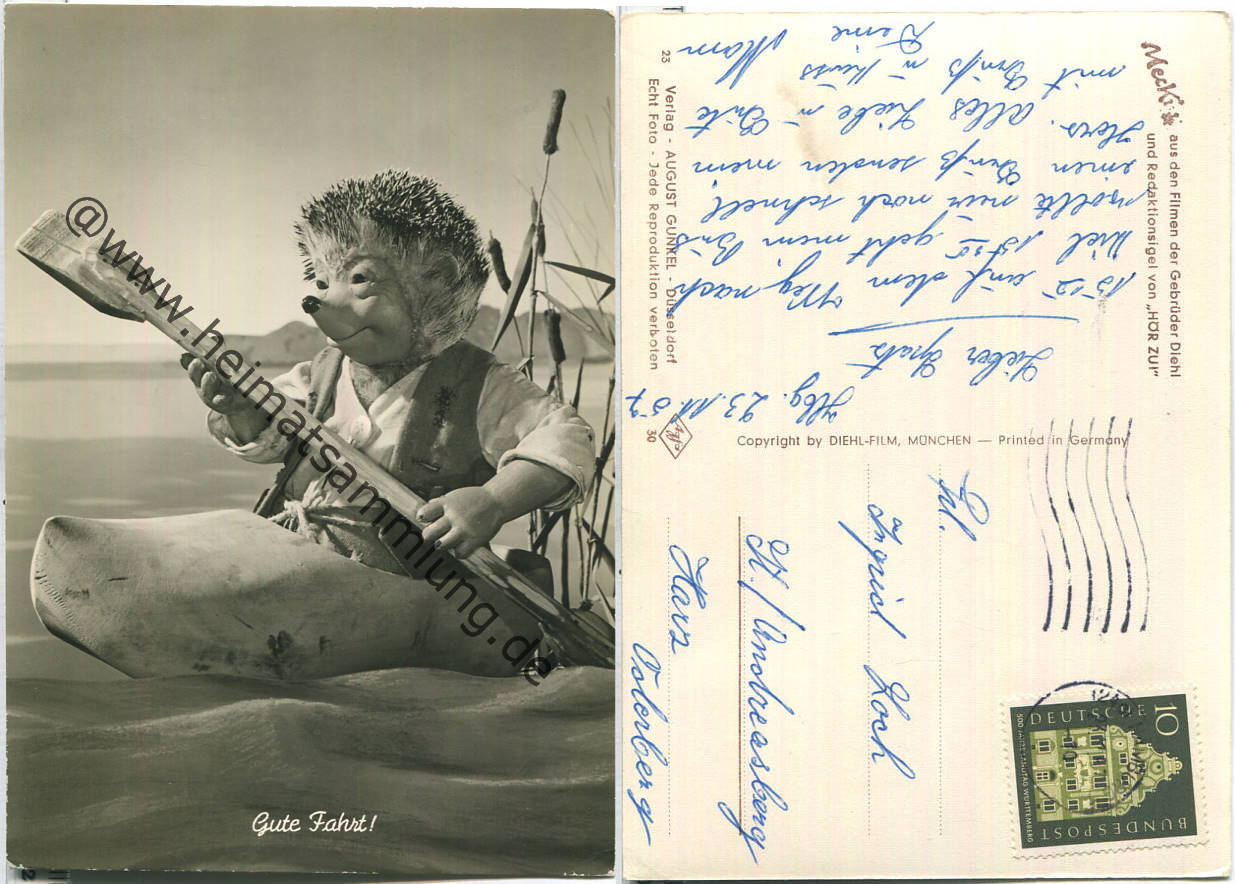 @www.heimatsammlung.de
Gute Fahrt!
Mecki aus den Filmen der Gebrüder Diehl
und Redaktionsigel von „HÖR ZU!"
23 Verlag - AUGUST GUNKEL - Düsseldorf
Echt Foto - Jede Reproduktion verboten
30
Copyright by DIEHL-FILM, MÜNCHEN — Printed in Germany
Hbg. 23.11.57
Lieber Spatz
auf dem Weg nach
Kiel geht mein Bus
wollte nur noch schnell
einen Gruß senden mein
Herz. Alles Liebe u Gute
mit Gruß u Kuss
Deine
Frl.
Ingrid Koch
St./Andreasberg
Harz
Oderberg
10
DEUTSCHE
BUNDESPOST
500 JAHRE LANDTAG WÜRTTEMBERG